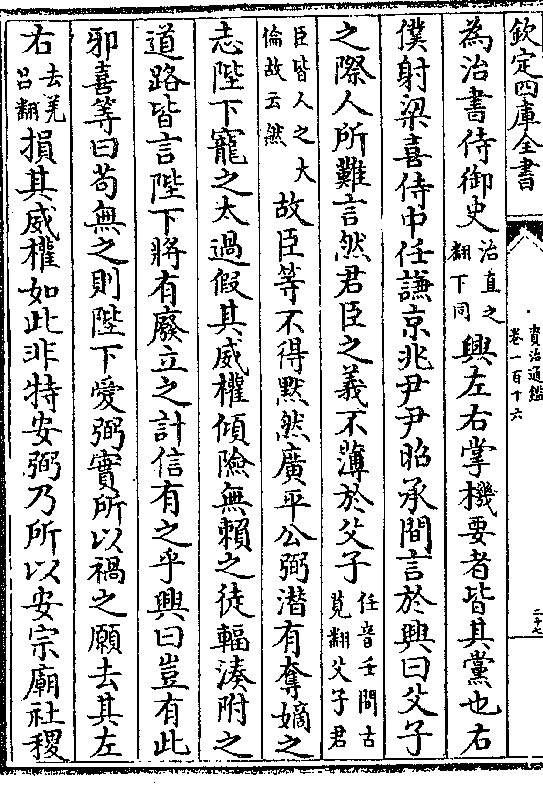 欽定四庫全書
資治通鑑
卷一百十六
二十七
為治書侍御史治直之翻下同興左右掌機要者皆其黨也右
僕射梁喜侍中任謙京兆尹尹昭承間言於興曰父子
之際人所難言然君臣之義不薄於父子任音壬間古莧翻父子君
臣皆人之大倫故云然故臣等不得默然廣平公弼潛有奪嫡之
志陛下寵之太過假其威權傾險無賴之徒輻湊附之
道路皆言陛下將有廢立之計信有之乎興曰豈有此
邪喜等曰苟無之則陛下愛弼實所以禍之願去其左
右去羌呂翻損其威權如此非特安弼乃所以安宗廟社稷